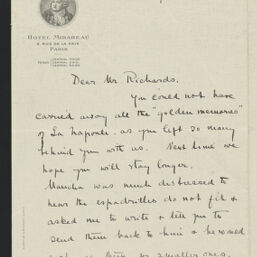 HOTEL MIRABEAU
8, RUE DE LA PAIX
PARIS
Dear Mr. Richards,
You could not have
carried away all the "golden memories"
of La Napoule, as you left so many
behind you with us. Next time we
hope you will stay longer.
was much distressed to
hear the espadrilles do not fit &
asked me to write & tell you to
send them back to him & he would
smaller ones.